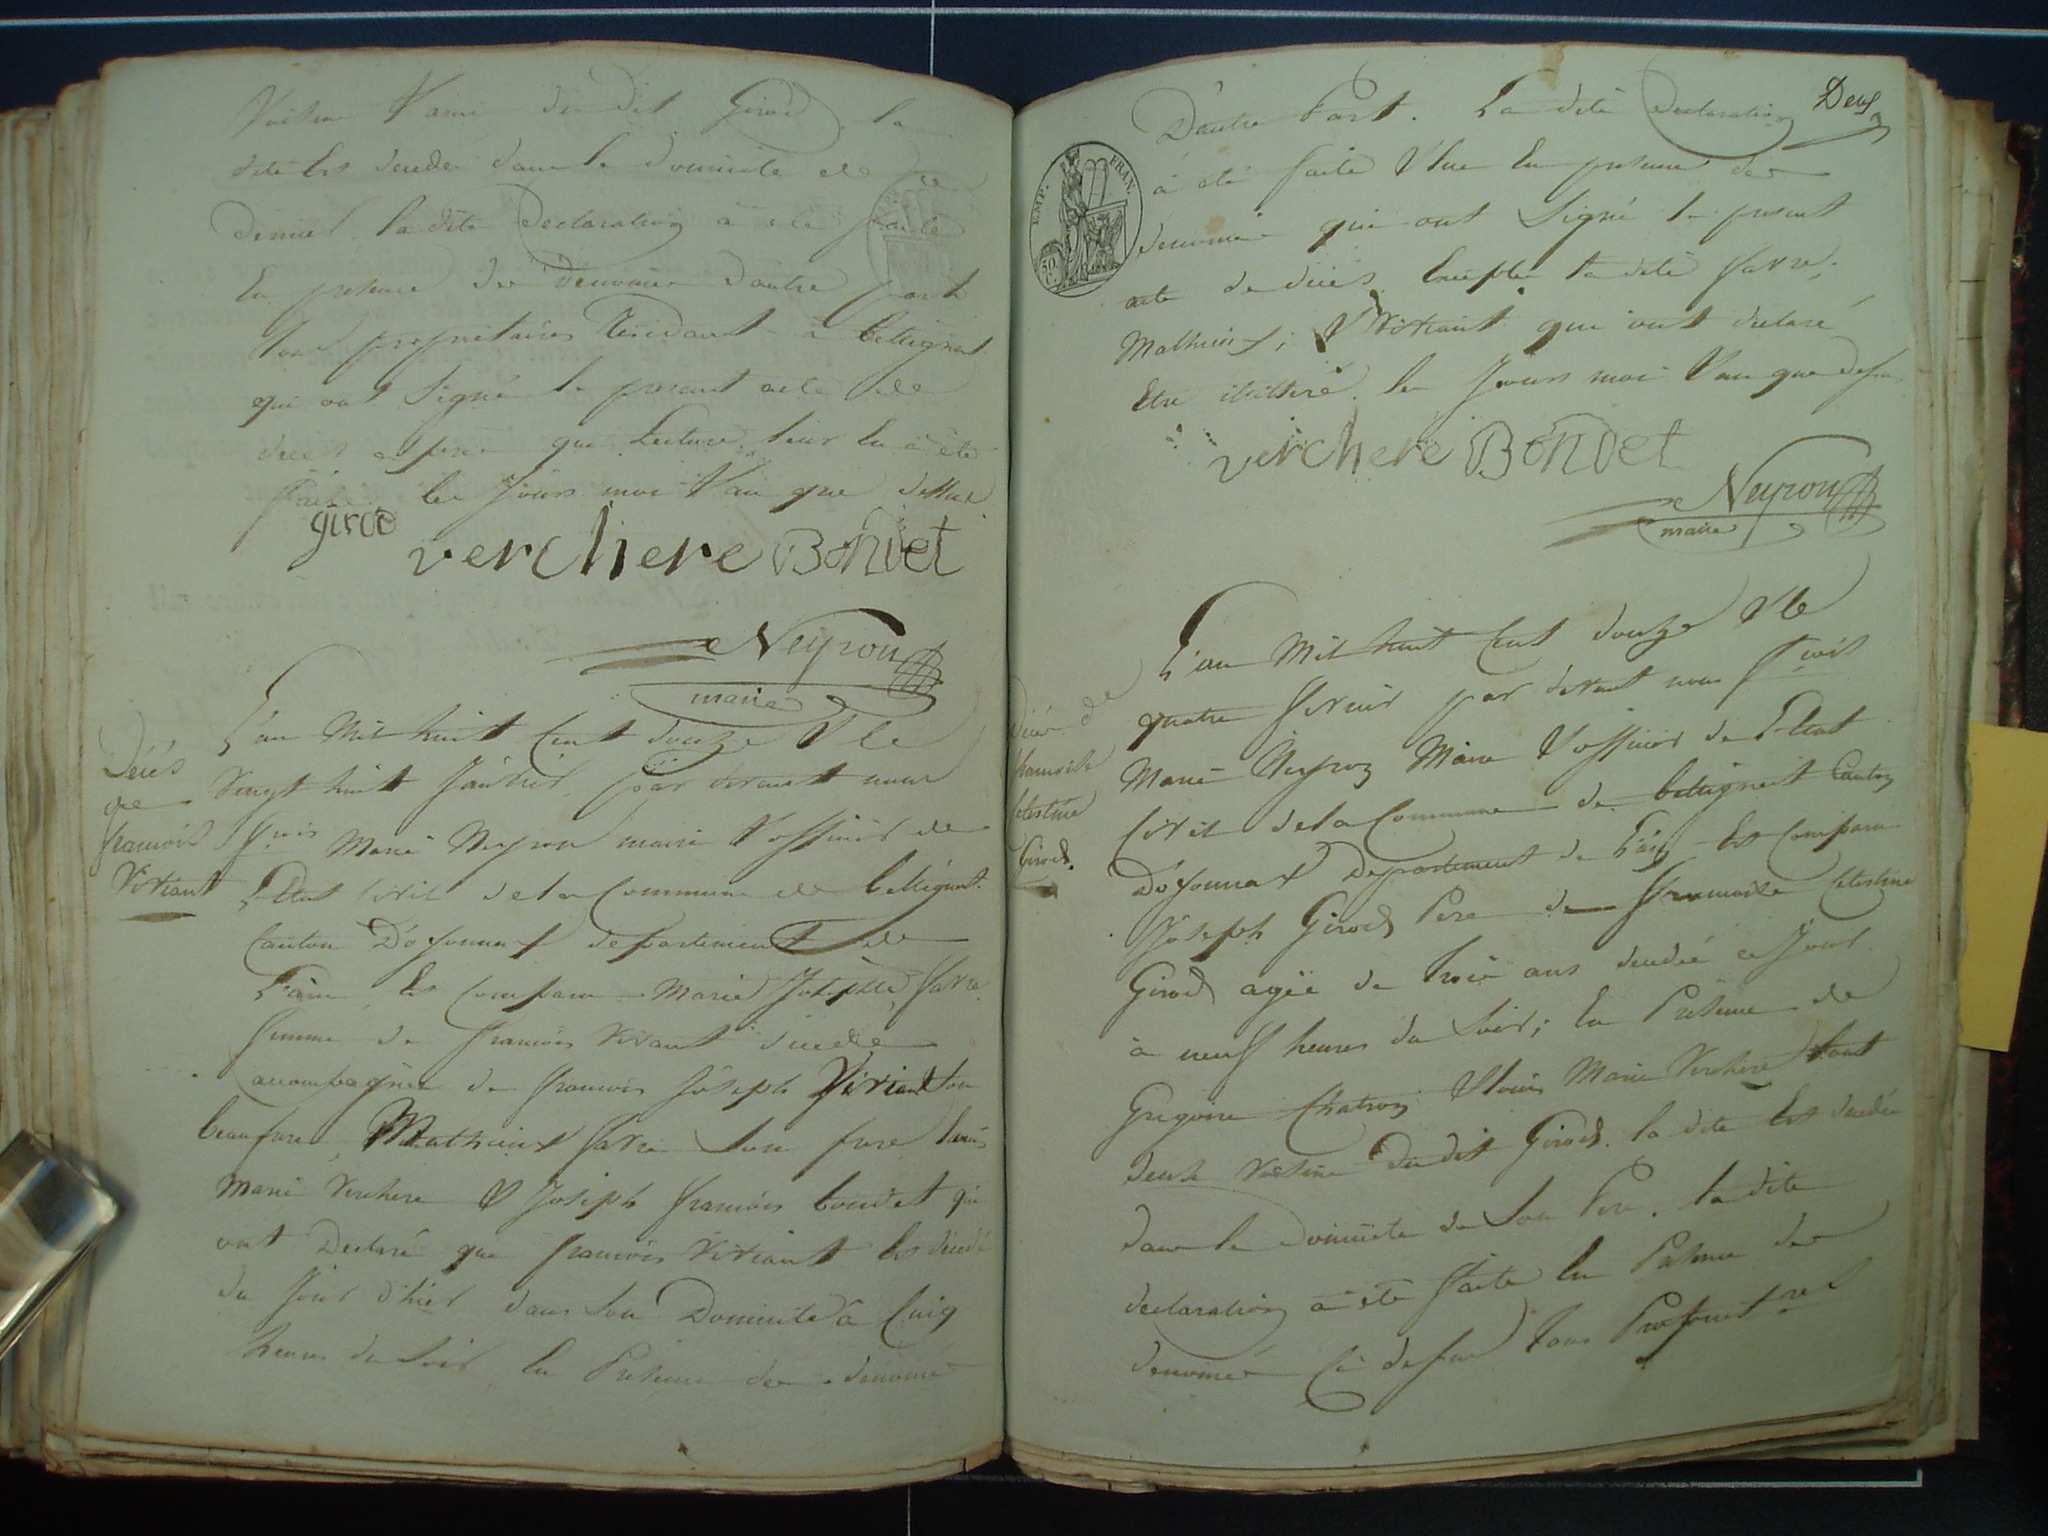 Voisin & ami du dit Girod la
dite est décédée dans le domicile de ce
dernier la dite déclaration a été faite
en présence des dénommés d'autre part
tous propriétaires Résidant à belleignat
qui ont Signé le présent acte de
décès après que Lecture leur en a été
faite les Jours mois & an que dessus
girod verchere Bondet
Neyron
maire
Décès
de
françois
Viviant
L'an Mil huit Cent douze & le
Vingt huit Janvier par devant nous
fçois Marie Neyron maire & officier de
L'Etat Civil de la Commune de belleignat
Canton D'oyonnax département de
L'ain Est Comparu Marie Josephte favre
femme de françois Viviant décédé
accompagnée de françois Joseph Viviant son
beaufrere, Mathieu favre Son frere Louis
Marie Verchere & Joseph françois bondet qui
ont Déclaré que françois Viviant Est décédé
du Jour d'hier dans son Domicile à Cinq
heures du Soir, En Présence des dénommés
Deux
D'autre Part. La dite declaration
a été faite & lue En présence des
dénommés qui ont Signé le présent
acte de décès Excepté la dite favre,
Mathieu, & Viviant qui ont déclaré
Etre illitéré les Jours mois & an que dessus
EMP. FRAN.
50 C
verchere Bondet
Neyron
maire
Décès de
françoise
Celestine
Girod.
L'an Mil huit Cent douze & le
quatre fevrier par devant nous fçois
Marie Neyron Maire & officier de L'Etat
Civil de la Commune de belleignat Canton
D'oyonnax Departement de L'ain Est Comparu
Joseph Girod Pere de françoise Celestine
Girod agée de trois ans décédée ce Jour
à neuf heures du Soir; En Présence de
Gregoire Chatron & Louis Marie Verchere tout
deux Voisins du dit Girod. la dite Est décédée
dans le Domicile de Son Pere. la dite
declaration a été faite En Présence des
dénommés Ci dessus tous Propriét res